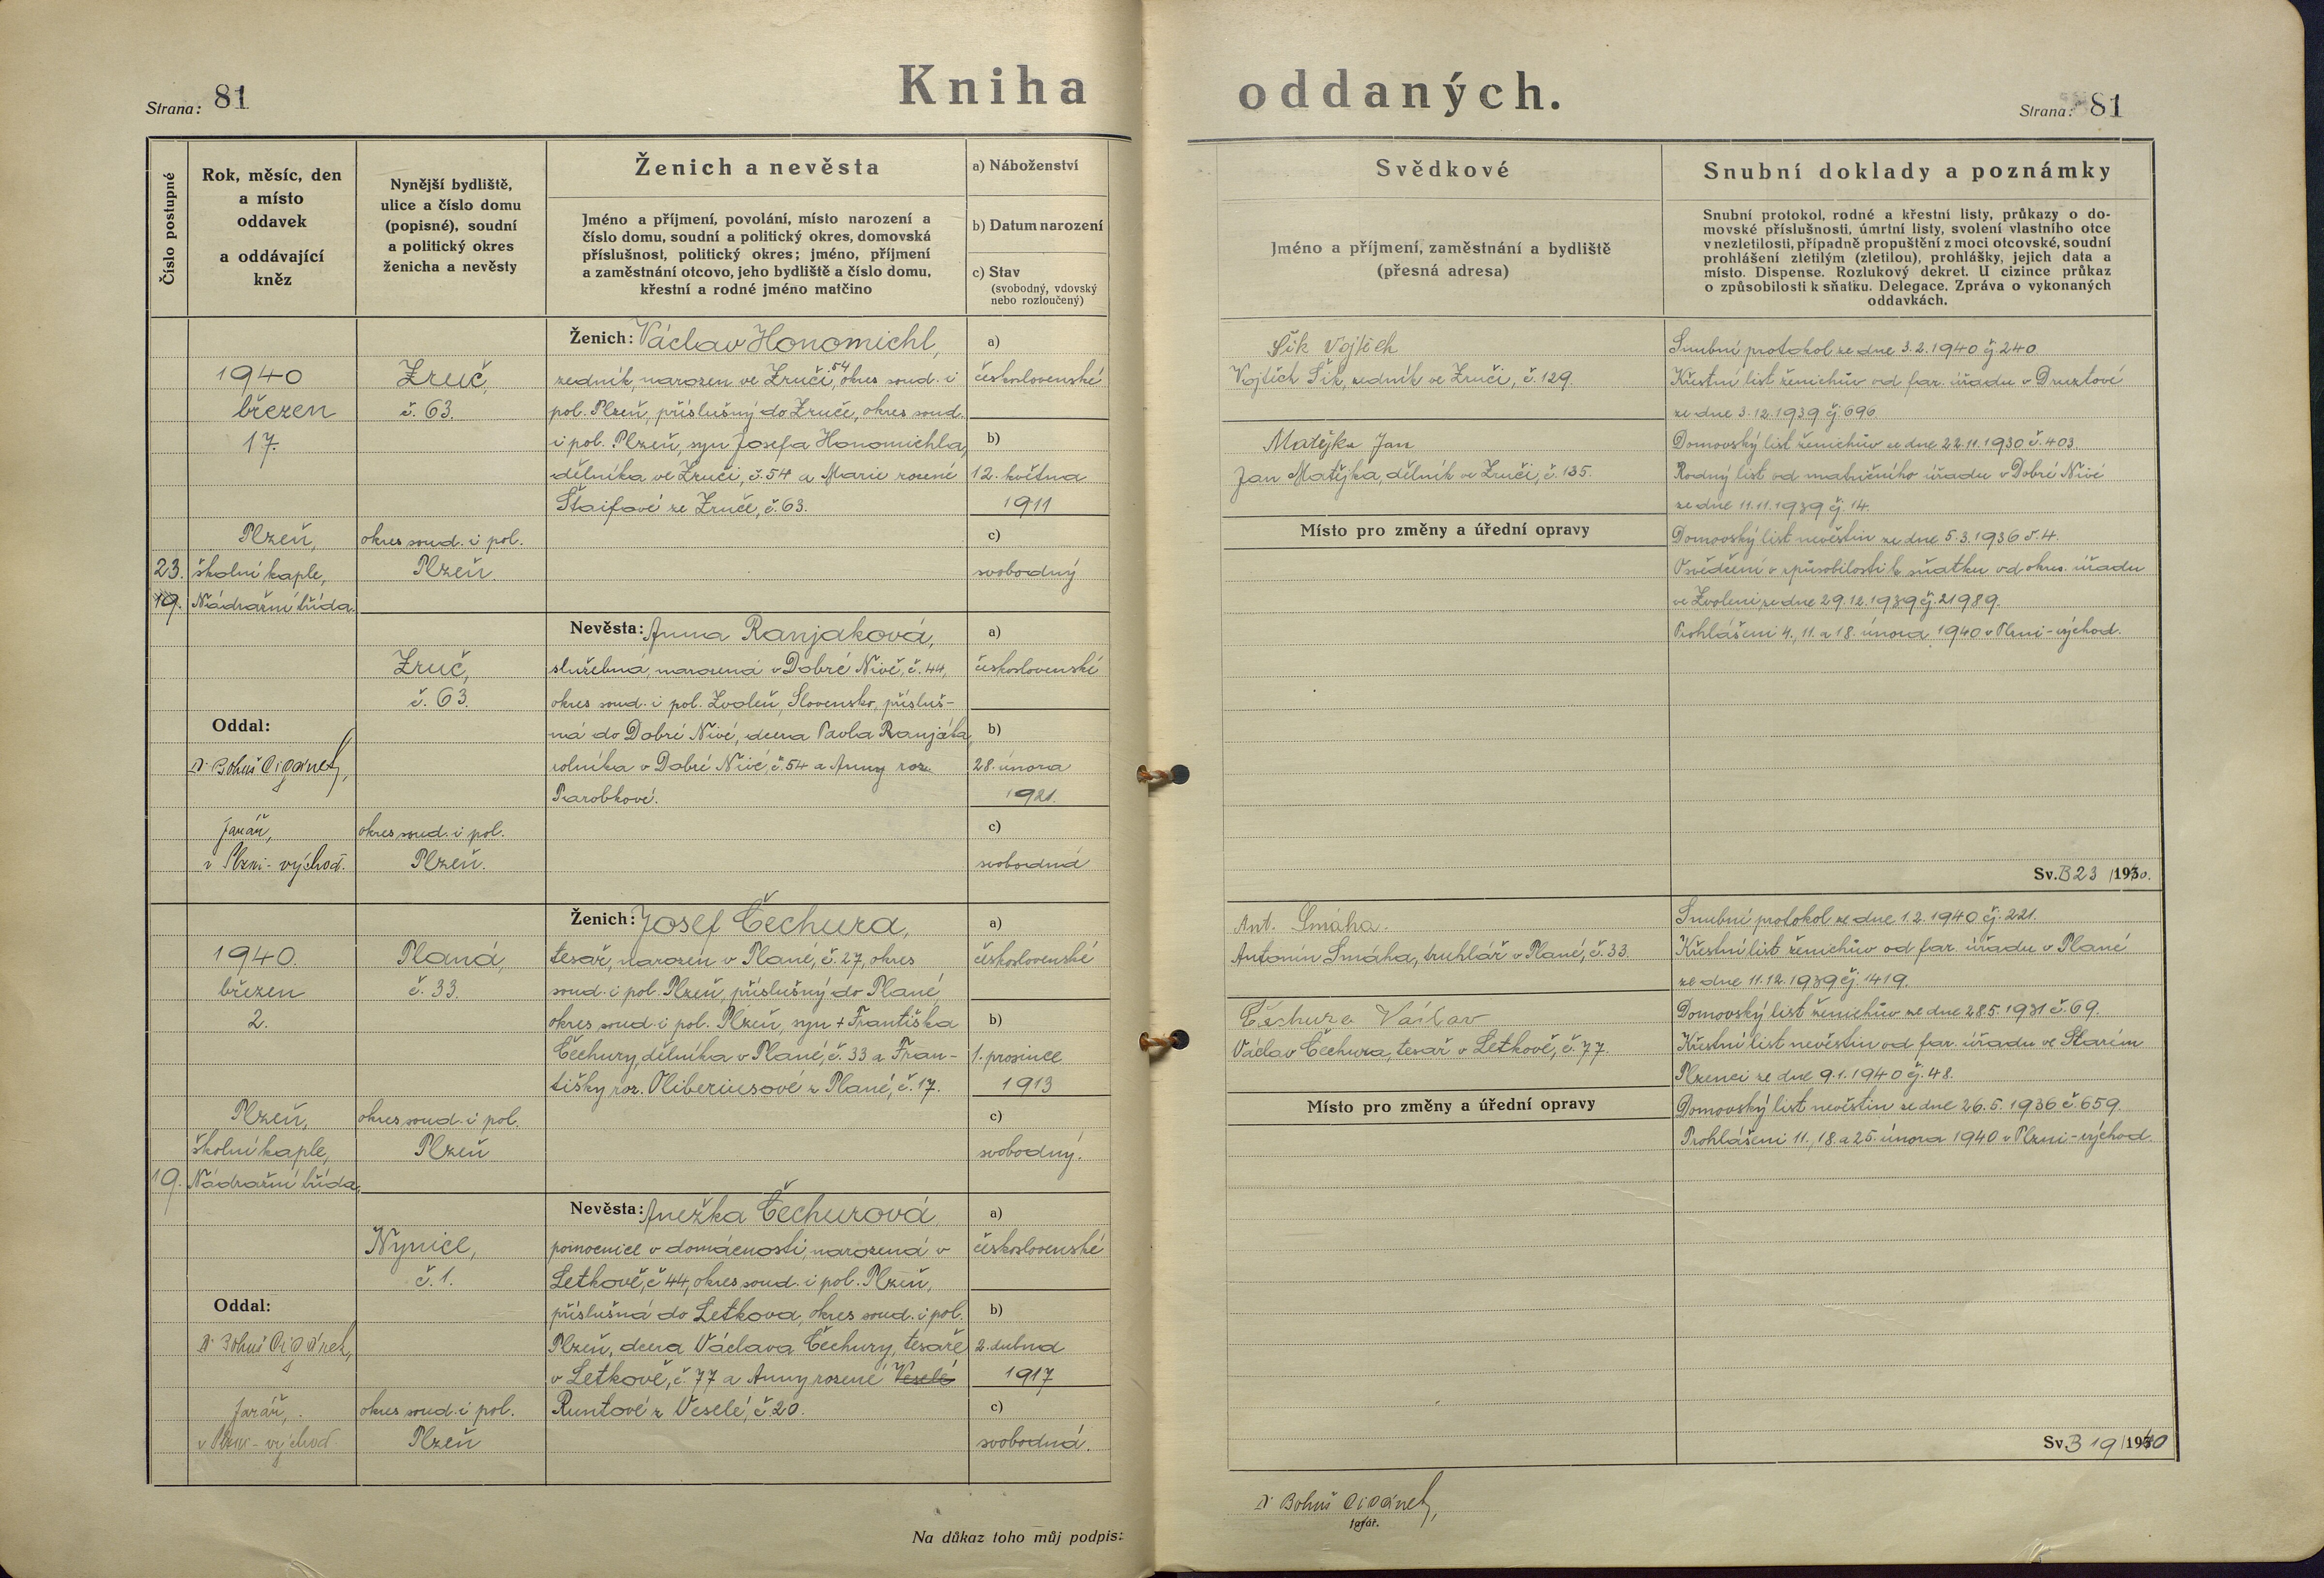 Kniha oddaných.
Strana: 81
Strana: 81
Číslo postupné
Rok, měsíc, den
a místo
oddavek
a oddávající
kněz
Nynější bydliště,
ulice a číslo domu
(popisné), soudní
a politický okres
ženicha a nevěsty
Ženich a nevěsta
Jméno a příjmení, povolání, místo narození a
číslo domu, soudní a politický okres, domovská
příslušnost, politický okres; jméno, příjmení
a zaměstnání otcovo, jeho bydliště a číslo domu,
křestní a rodné jméno matčino
a) Náboženství
b) Datum narození
c) Stav
(svobodný, vdovský
nebo rozloučený)
Svědkové
Jméno a příjmení, zaměstnání a bydliště
(přesná adresa)
Snubní doklady a poznámky
Snubní protokol, rodné a křestní listy, průkazy o do-
movské příslušnosti, úmrtní listy, svolení vlastního otce
v nezletilosti, případně propuštění z moci otcovské, soudní
prohlášení zletilým (zletilou), prohlášky, jejich data a
místo. Dispense. Rozlukový dekret. U cizince průkaz
o způsobilosti k sňatku. Delegace. Zpráva o vykonaných
oddavkách.
23.
19.
1940
březen
17.
Plzeň,
školní kaple,
Nádražní třída.
Oddal:
Dr Bohuš Cigánek,
farář,
v Plzni-východ.
Zruč,
č. 63.
okres soud. i pol.
Plzeň.
Zruč,
č. 63.
okres soud. i pol.
Plzeň.
Ženich: Václav Honomichl,
zedník, narozen ve Zruči, 54 okres soud. i
pol. Plzeň, příslušný do Zruče, okres soud.
i pol. Plzeň, syn Josefa Honomichla,
dělníka ve Zruči, č. 54 a Marie rozené
Štaifové ze Zruče, č. 63.
Nevěsta: Anna Ranjaková,
služebná, narozená v Dobré Nivě, č. 44,
okres soud. i pol. Zvoleň, Slovensko, přísluš-
ná do Dobré Nivé, dcera Pavla Ranjáka,
rolníka v Dobré Nivé, č. 54 a Anny roz.
Parobkové.
a)
československé
b)
12. května
1911
c)
svobodný
a)
československé
b)
28. února
1921.
c)
svobodná
Šik Vojtěch
Vojtěch Šik, zedník ve Zruči, č. 129.
Matějka Jan
Jan Matějka, dělník ve Zruči, č. 135.
Místo pro změny a úřední opravy
Snubní protokol ze dne 3.2.1940 čj. 240
Křestní list ženichův od far. úřadu v Druztové
ze dne 3.12.1939 čj. 696.
Domovský list ženichův ze dne 22.11.1930 č. 403.
Rodný list od matričního úřadu v Dobré Nivé
ze dne 11.11.1939 čj. 14.
Domovský list nevěstin ze dne 5.3.1936 č. 4.
Osvědčení o způsobilosti k sňatku od okres. úřadu
ve Zvoleni ze dne 29.12.1939 čj. 21989.
Prohlášeni 4., 11. a 18. února 1940 v Plzni-východ.
Sv. B 23 /1940.
19.
1940.
březen
2.
Plzeň,
školní kaple,
Nádražní třída.
Oddal:
Dr Bohuš Cigánek,
farář,
v Plzni-východ
Planá,
č. 33.
okres soud. i pol.
Plzeň
Nynice,
č. 1.
okres soud. i pol.
Plzeň
Ženich: Josef Čechura,
tesař, narozen v Plané, č. 27, okres
soud. i pol. Plzeň, příslušný do Plané,
okres soud. i pol. Plzeň, syn + Františka
Čechury, dělníka v Plané, č. 33 a Fran-
tišky roz. Oliberiusové z Plané, č. 17.
Nevěsta: Anežka Čechurová,
pomocnice v domácnosti narozená v
Letkově, č 44, okres soud. i pol. Plzeň,
příslušná do Letkova, okres soud. i pol.
Plzeň, dcera Václava Čechury, tesaře
v Letkově, č. 77 a Anny rozené Veselé
Runtové z Veselé, č. 20.
a)
československé
b)
1. prosince
1913
c)
svobodný.
a)
československé
b)
2. dubna
1917
c)
svobodná.
Ant. Smáha.
Antonín Smáha, truhlář v Plané, č. 33.
Čechura Václav
Václav Čechura, tesař v Letkově, č. 77.
Místo pro změny a úřední opravy
Snubní protokol ze dne 1.2.1940 čj. 221.
Křestní list ženichův od far. úřadu v Plané
ze dne 11.12.1939 čj. 1419.
Domovský list ženichův ze dne 28.5.1931 č. 69.
Křestní list nevěstin od far. úřadu ve Starém
Plzenci ze dne 9.1.1940 čj. 48.
Domovský list nevěstin ze dne 26.5.1936 č. 659.
Prohlášeni 11., 18. a 25. února 1940 v Plzni-východ.
Sv. B 19 /1940
Na důkaz toho můj podpis:
Dr Bohuš Cigánek,
farář.